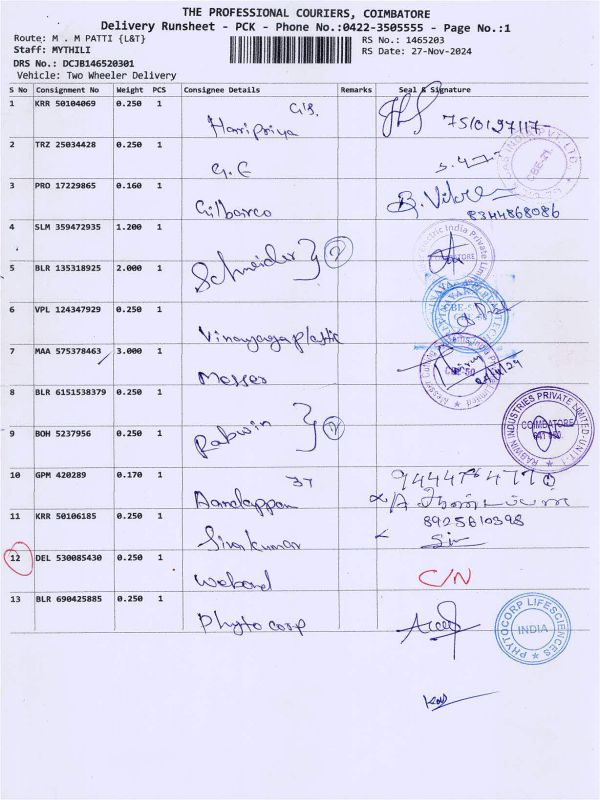 THE PROFESSIONAL COURIERS, COIMBATORE
Delivery Runsheet - PCK - Phone No.:0422-3505555 - Page No.:1
Route: M . M PATTI {L&T}
RS No.: 1465203
Staff: MYTHILI
RS Date: 27-Nov-2024
DRS No.: DCJB146520301
Vehicle: Two Wheeler Delivery
S No Consignment No Weight PCS Consignee Details Remarks Seal & Signature
1 KRR 50104069 0.250 1 Haripriya
2 TRZ 25034428 0.250 1 G.E
3 PRO 17229865 0.160 1 Gilbarco
8344868086
4 SLM 359472935 1.200 1
5 BLR 135318925 2.000 1 Schneider } 2
6 VPL 124347929 0.250 1 Vinayagaplastic
7 MAA 575378463 3.000 1 Messer
8 BLR 6151538379 0.250 1
9 BOH 5237956 0.250 1 Rabwin } 2
RABWIN INDUSTRIES PRIVATE LIMITED-UNIT-1
COIMBATORE
10 GPM 420289 0.170 1 37
11 KRR 50106185 0.250 1 Sivakumar
8925610398
12 DEL 530085430 0.250 1 C/N
13 BLR 690425885 0.250 1 Phytocorp
PHYTOCORP LIFESCIENCES
INDIA